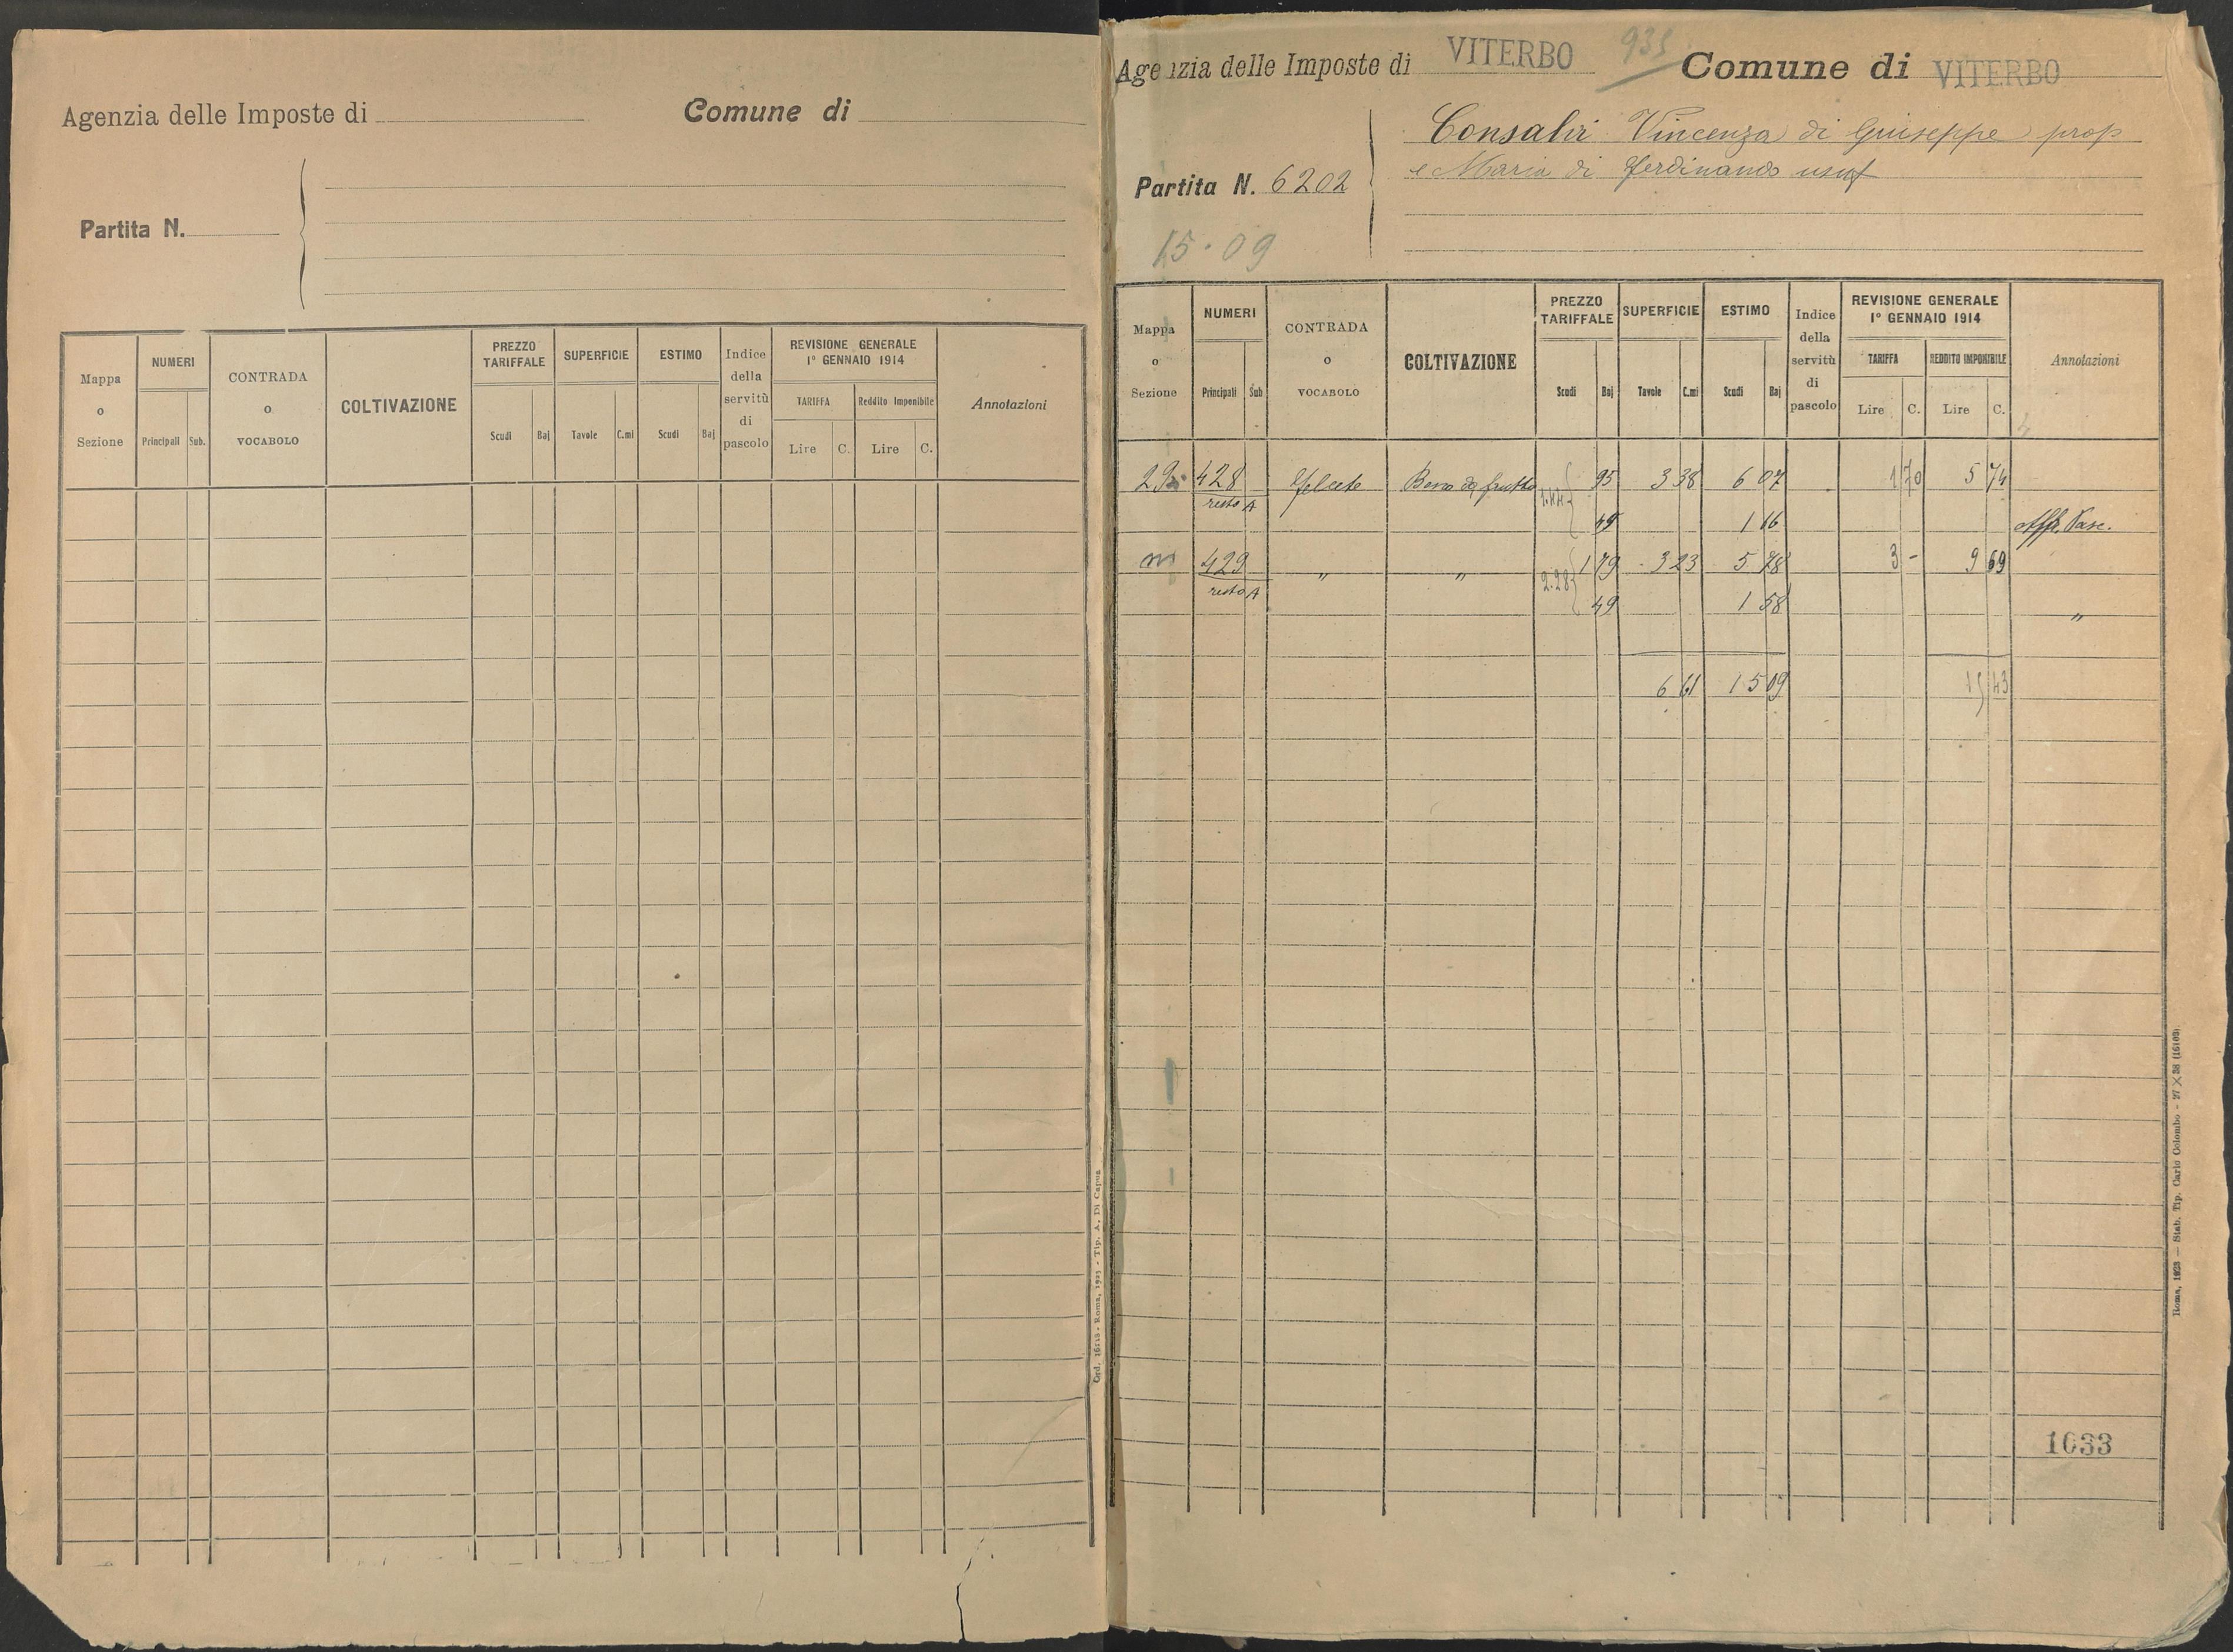 Agenzia delle Imposte di
Comune di
Partita N.
Mappa o Sezione
NUMERI
Principali
Sub.
CONTRADA o VOCABOLO
COLTIVAZIONE
PREZZO TARIFFALE
Scudi
Baj
SUPERFICIE
Tavole
C.mi
ESTIMO
Scudi
Baj
Indice della servitù di pascolo
REVISIONE GENERALE
1° GENNAIO 1914
TARIFFA
Lire
C.
Reddito Imponibile
Lire
C.
Annotazioni
Ord. - Roma, - Tip. A. Di Capua
Agenzia delle Imposte di VITERBO
935
Comune di VITERBO
Partita N. 6202
Consalvi Vincenza di Giuseppe prop
e Maria di Ferdinando usuf
15.09
Mappa o Sezione
NUMERI
Principali
Sub
CONTRADA o VOCABOLO
COLTIVAZIONE
PREZZO TARIFFALE
Scudi
Baj
SUPERFICIE
Tavole
C.mi
ESTIMO
Scudi
Baj
Indice della servitù di pascolo
REVISIONE GENERALE
1° GENNAIO 1914
TARIFFA
Lire
C.
REDDITO IMPONIBILE
Lire
C.
Annotazioni
428 95 3 38 6 07 1 70 5 74
resto A 1.44
49 1 16 Aff. Pasc.
429 " " 1 79 3 23 5 78 3 - 9 69
resto A 2.28
49 1 58 "
6 61 15 09 15 43
1033
Roma, 1923 — Stab. Tip. Carlo Colombo - 27 X 38 (16109)